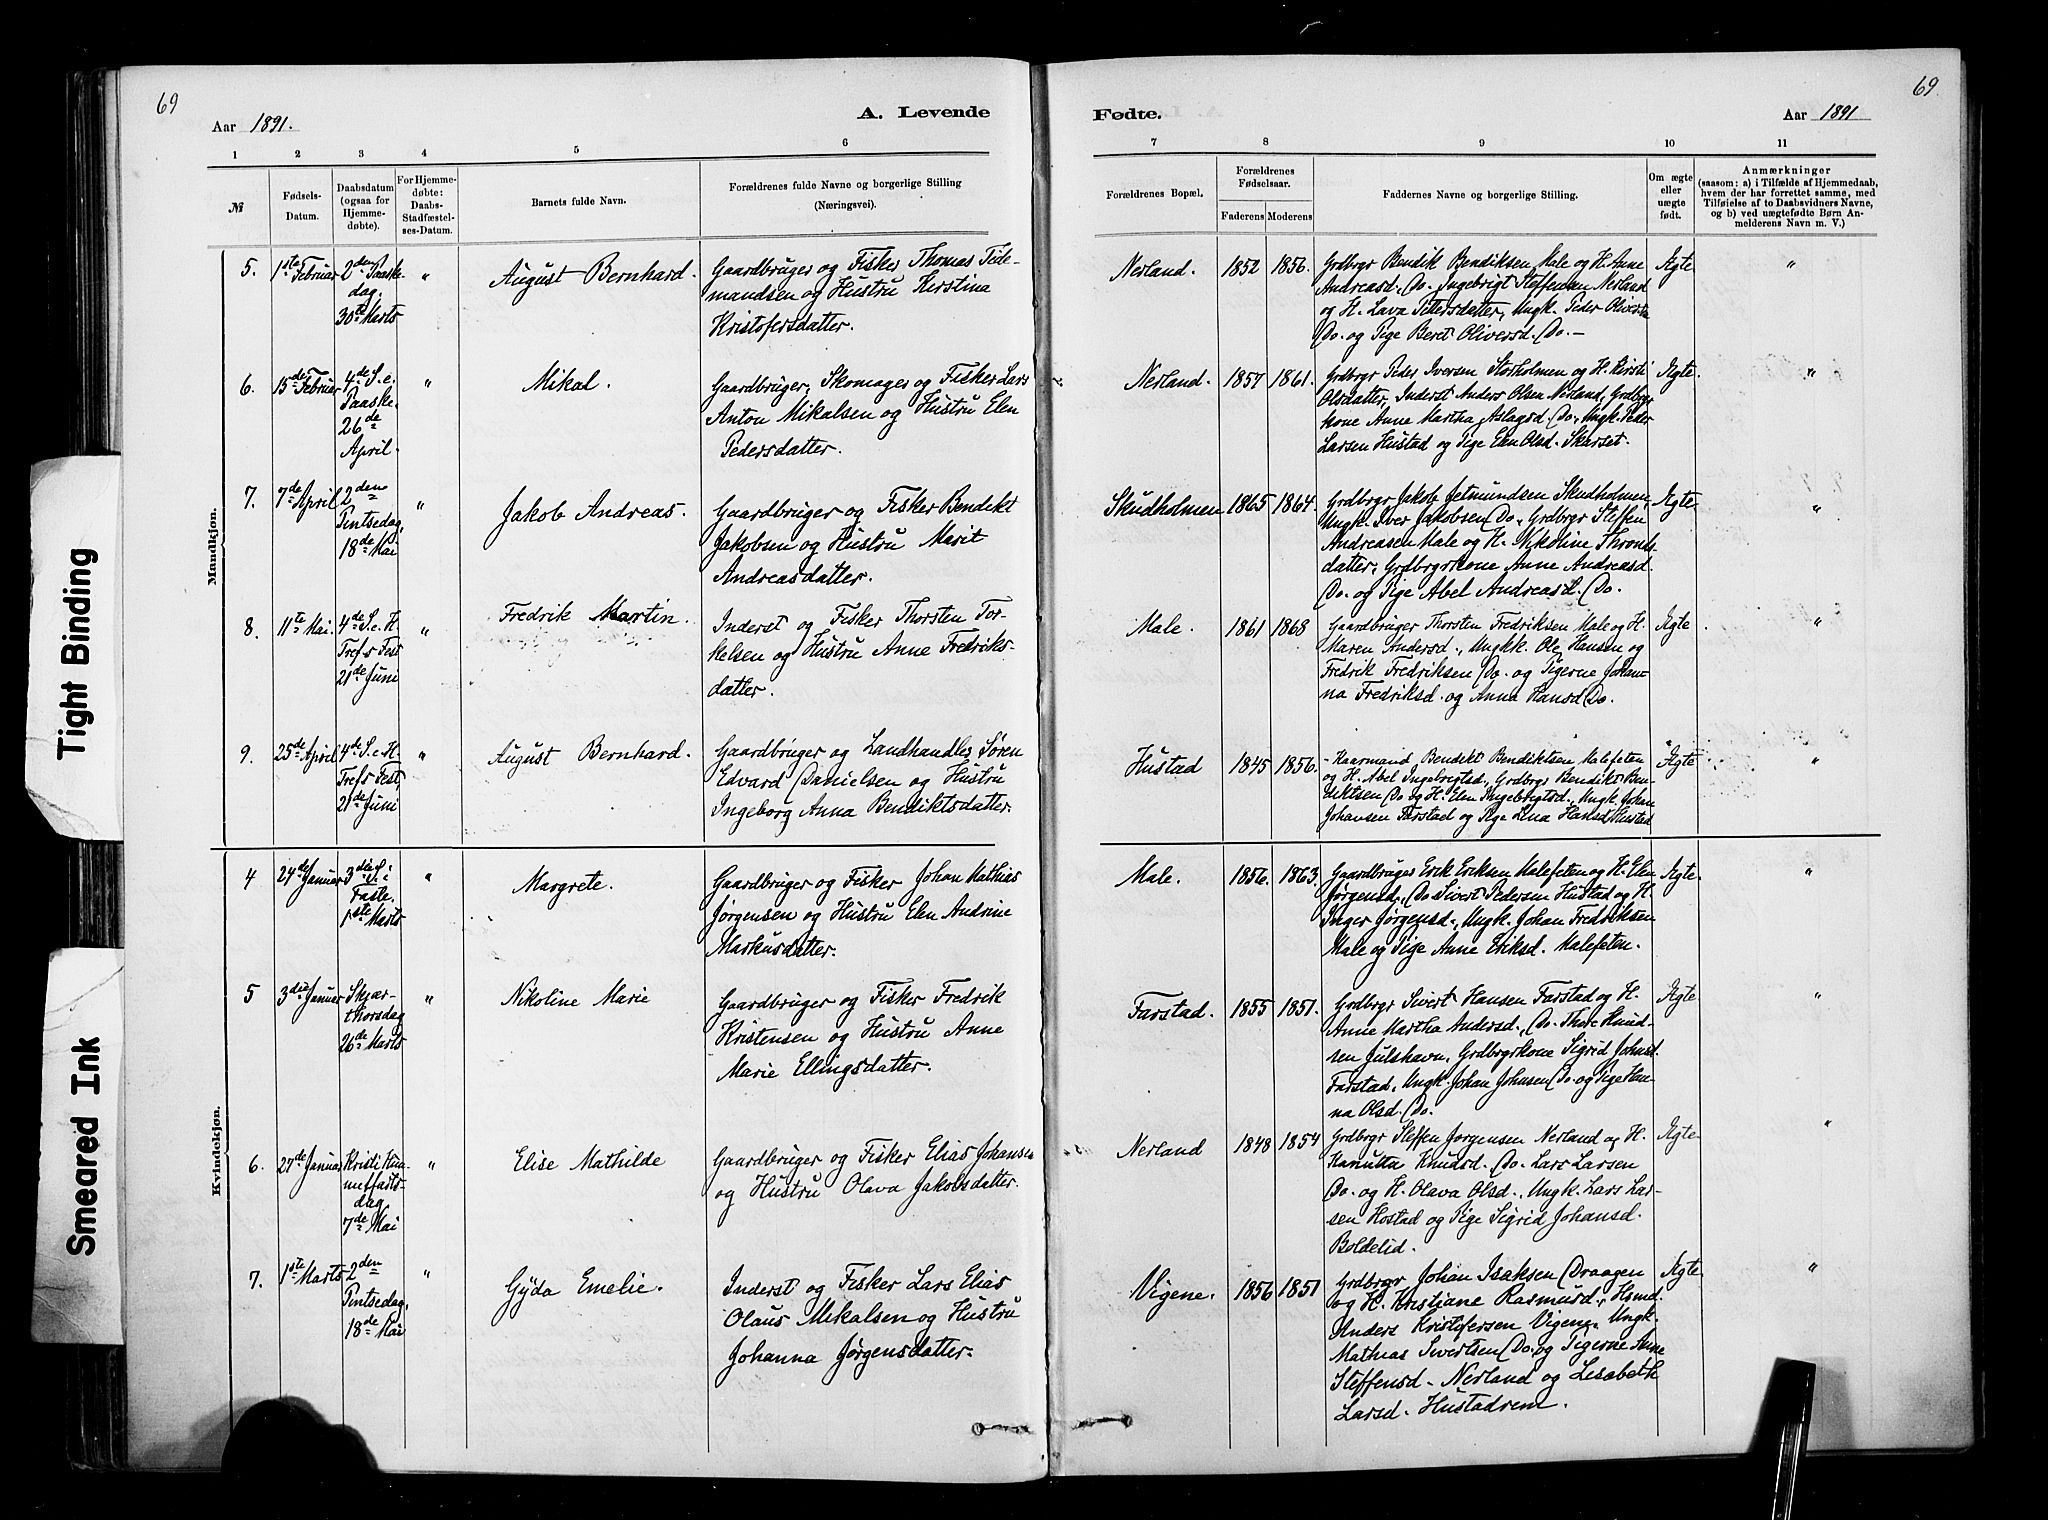 69
69.
Aar 1891.
A. Levende
Fødte.
Aar 1891
1 2 3 4 5 6 7 8 9 10 11
№
Fødsels-
Datum.
Daabsdatum
(ogsaa for
Hjemme-
døbte).
For Hjemme-
døbte:
Daabs-
Stadfæstel-
ses-Datum.
Barnets fulde Navn.
Forældrenes fulde Navne og borgerlige Stilling
(Næringsvei).
Forældrenes Bopæl.
Forældrenes
Fødselsaar.
Faderens Moderens
Faddernes Navne og borgerlige Stilling.
Om ægte
eller
uægte
født.
Anmærkninger
(saasom: a) i Tilfælde af Hjemmedaab,
hvem der har forrettet samme, med
Tilføielse af to Daabsvidners Navne,
og b) ved uægtefødte Børn An-
melderens Navn m. V.)
Mandkjøn.
5.
1ste Februar
2den Paaske-
dag,
30te Marts
"
August Bernhard.
Gaardbruger og Fisker Thomas Tide-
mandsen og Hustru Kirstina
Kristofersdatter.
Nerland.
1852
1856.
Grdbrgr Bendik Bendiksen Male og H. Anne
Andreasd., Do. Ingebrigt Steffensen Nerland
og H. Lava Pettersdatter, Ungk. Peder Oliversen
Do. og Pige Beret Oliversd. Do. -
Ægte
"
6.
15de Februar
4de S. e.
Paaske.
26de
April.
"
Mikal.
Gaardbruger, Skomager og Fisker Lars
Anton Mikalsen og Hustru Elen
Pedersdatter.
Nerland.
1857
1861.
Grdbrgr Peder Iversen Storholmen og H. Kirsti
Olsdatter, Inderst Anders Olsen Nerland, Grdbrgr
kone Anne Martha Aslagsd. Do., Ungk. Peder
Larsen Hustad og Pige Elen Olsd. Skarset.
Ægte
"
7.
7de April
2den
Pintsedag,
18de Mai
"
Jakob Andreas.
Gaardbruger og Fisker Bendikt
Jakobsen og Hustru Marit
Andreasdatter.
Skudholmen
1865
1864.
Grdbrgr Jakob Jetmundsen Skudholmen,
Ungk. Iver Jakobsen Do., Grdbrgr Steffen
Andreasen Male og H. Nikoline Thronds-
datter, Grdbrgrkone Anne Andreasd.
Do. og Pige Abel Andreasd. Do.
Ægte
"
8.
11te Mai.
4de S. e. H.
Tref's Fest
21de Juni
"
Fredrik Martin.
Inderst og Fisker Thorsten Tor-
kelsen og Hustru Anne Fredriks-
datter.
Male.
1861
1868
Gaardbruger Thorsten Fredriksen Male og H.
Maren Andersd., Ungkk. Ole Hansen og
Fredrik Fredriksen Do. og Pigerne Johan-
na Fredriksd. og Anna Hansd Do.
Ægte
"
9.
25de April
4de S. e H.
Tref's Fest,
21de Juni
"
August Bernhard.
Gaardbruger og Landhandler Søren
Edvard Danielsen og Hustru
Ingeborg Anna Bendiktsdatter.
Hustad
1845
1856.
- Kaarmand Bendikt Bendiktsen Malefeten
og H. Abel Ingebrigtsd., Grdbrgr Bendikt Ben-
diktsen Do og H. Elen Ingebrigtsd., Ungk. Johan
Johansen Farstad og Pige Lina Hansd Hustad
Ægte
"
Kvindekjøn.
4
24de Januar
3die S. i
Faste.
1ste Marts
"
Margrete.
Gaardbruger og Fisker Johan Mathias
Jørgensen og Hustru Elen Andrine
Markusdatter.
Male.
1856.
1863.
Gaardbruger Erik Eriksen Malefeten og H. Elen
Jørgensd., Do Sivert Pedersen Hustad og H.
Inger Jørgensd., Ungk. Johan Fredriksen
Male og Pige Anne Eriksd. Malefeten.
Ægte.
"
5
3die Januar
Skjær-
thorsdag
26de Marts
"
Nikoline Marie
Gaardbruger og Fisker Fredrik
Kristensen og Hustru Anne
Marie Ellingsdatter.
Farstad.
1855
1851.
Grdbrgr Sivert Hansen Farstad og H.
Anne Martha Andersd., Do. Thore Knud-
sen Julshavn, Grdbrgrkone Sigrid Johnsd.
Farstad, Ungk. Johan Johnsen Do. og Pige Han-
na Olsd. Do.
Ægte
"
6.
27de Januar
Kristi Him-
melfarts-
dag
7de Mai
"
Elise Mathilde
Gaardbruger og Fisker Elias Johansen
og Hustru Olava Jakobsdatter.
Nerland
1848
1854
Grdbrgr Steffen Jørgensen Nerland og H.
Kanutta Knudsd. Do. Lars Larsen
Do. og H. Olava Olsd., Ungk. Lars Lar-
sen Hostad og Pige Sigrid Johansd.
Boldelid.
Ægte
"
7.
1ste Marts
2den
Pintsedag,
18de Mai
"
Gyda Emelie.
Inderst og Fisker Lars Elias
Olaus Mikalsen og Hustru
Johanna Jørgensdatter.
Vigene.
1856
1851
Grdbrgr Johan Isaksen Draagen
og H. Kristiane Rasmusd., Hsmd.
Anders Kristofersen Vigene, Ungk.
Mathias Sivertsen Do. og Pigerne Anne
Steffensd. Nerland og Lisabeth
Larsd. Hustadrem.
Ægte
"
Tight Binding
Smeared Ink